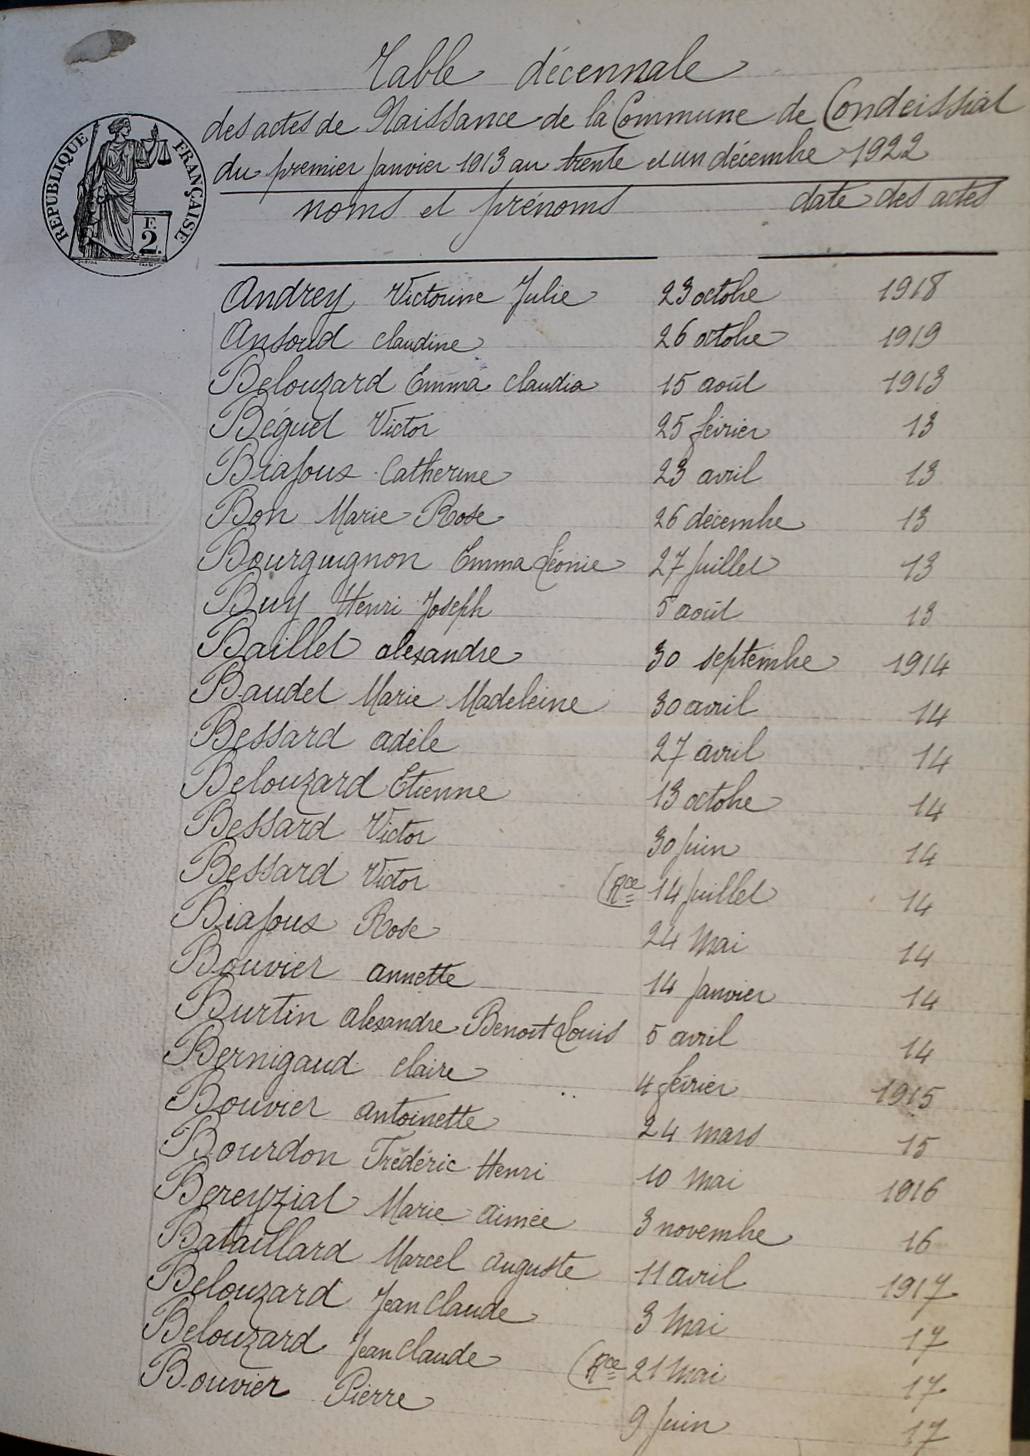 Table décennale
des actes de Naissance de la Commune de Condeissiat
du premier Janvier 1913 au trente et un décembre 1922
REPUBLIQUE FRANÇAISE
2
noms et prénoms date des actes
Andrey Victorine Julie 23 octobre 1918
Ansoud Claudine 26 octobre 1919
Belouzard Emma Claudia 15 août 1913
Béguet Victor 25 février 13
Biajoux Catherine 23 avril 13
Bon Marie Rose 26 décembre 13
Bourguignon Emma Léonie 27 Juillet 13
Buy Henri Joseph 5 août 13
Baillet alexandre 30 septembre 1914
Baudet Marie Madeleine 30 avril 14
Bessard adèle 27 avril 14
Belouzard Etienne 13 octobre 14
Bessard Victor 30 Juin 14
Bessard Victor (Rce 14 Juillet 14
Biajoux Rose 24 Mai 14
Bouvier annette 14 Janvier 14
Burtin alexandre Benoit Louis 5 avril 14
Bernigaud Claire 4 février 1915
Bouvier antoinette 24 mars 15
Bourdon Frédéric Henri 10 Mai 1916
Bereyziat Marie aimée 3 novembre 16
Bataillard Marcel auguste 11 avril 1917
Belouzard Jean Claude 3 Mai 17
Belouzard Jean Claude (Rce 21 Mai 17
Bouvier Pierre 9 Juin 17